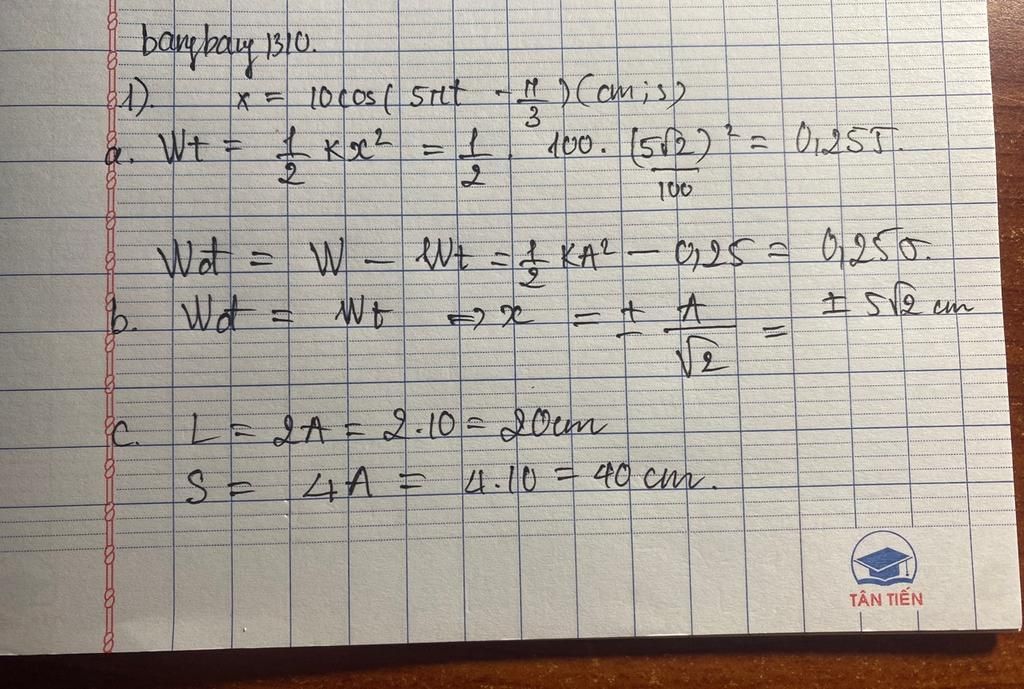 bangbang1310.
1). x = 10cos(5πt - π/3)(cm;s)
a. Wt = 1/2 Kx² = 1/2 . 100. (5√2/100)² = 0,25J.
Wđ = W - Wt = 1/2 KA² - 0,25 = 0,25J.
b. Wđ = Wt => x = ± A/√2 = ± 5√2 cm
c. L = 2A = 2.10 = 20cm
S = 4A = 4.10 = 40 cm.
TÂN TIẾN